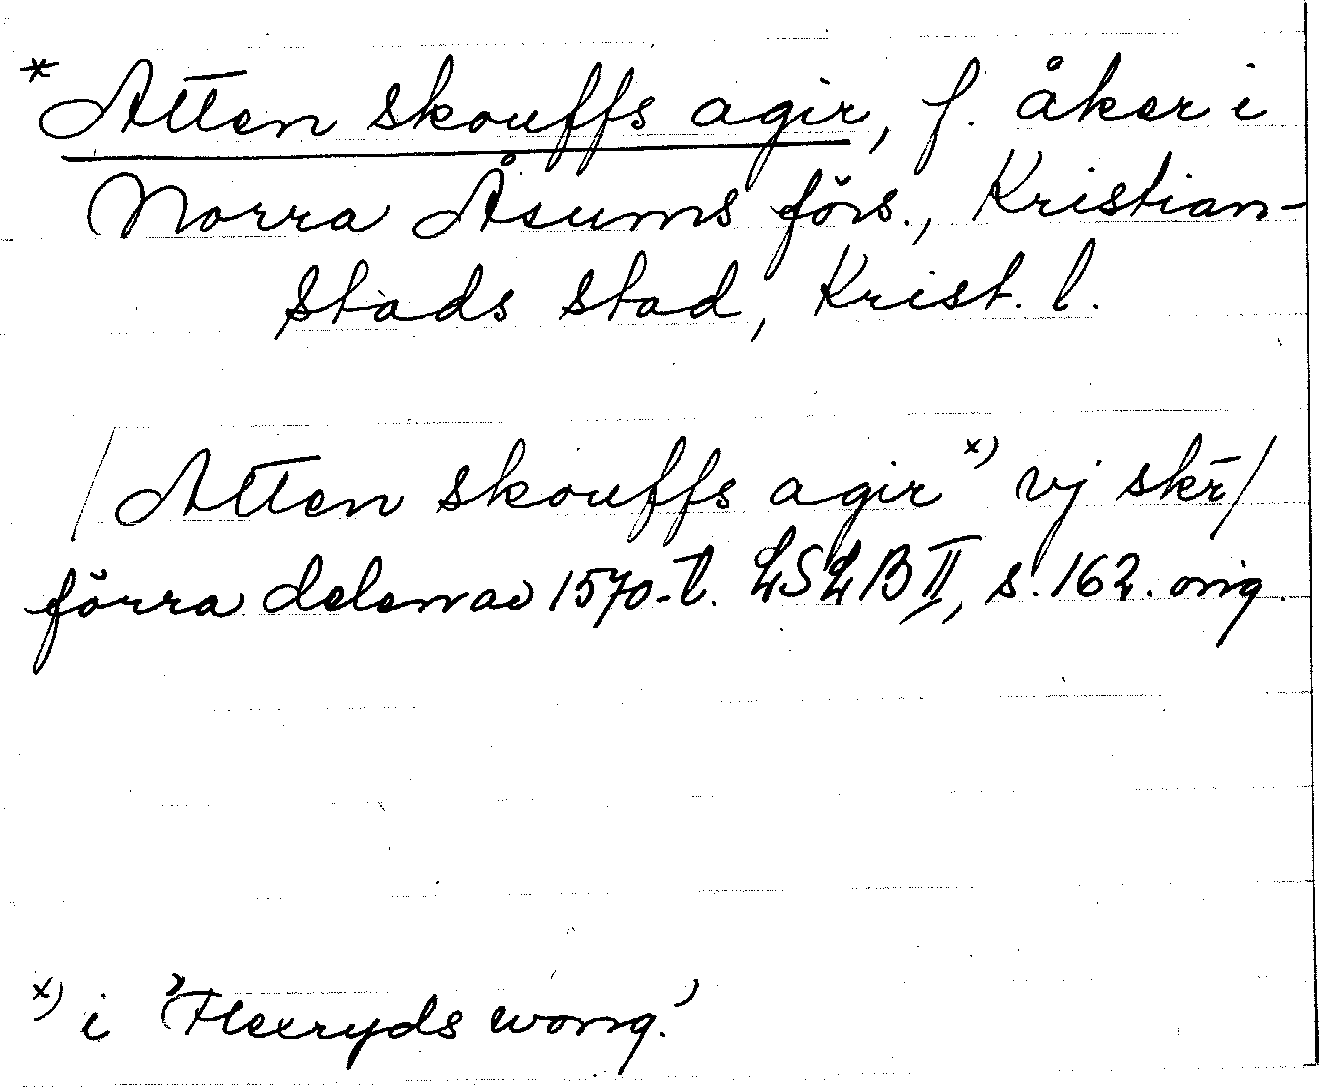 * Atten skouffs agir, f. åker i
Norra Åsums förs., Kristian-
stads stad, Krist. l.
/Atten skouffs agir x) vj skr̄/
förra delen av 1570-t. LSLB II, s. 162. orig.
x) i 'Heeryds wong.'